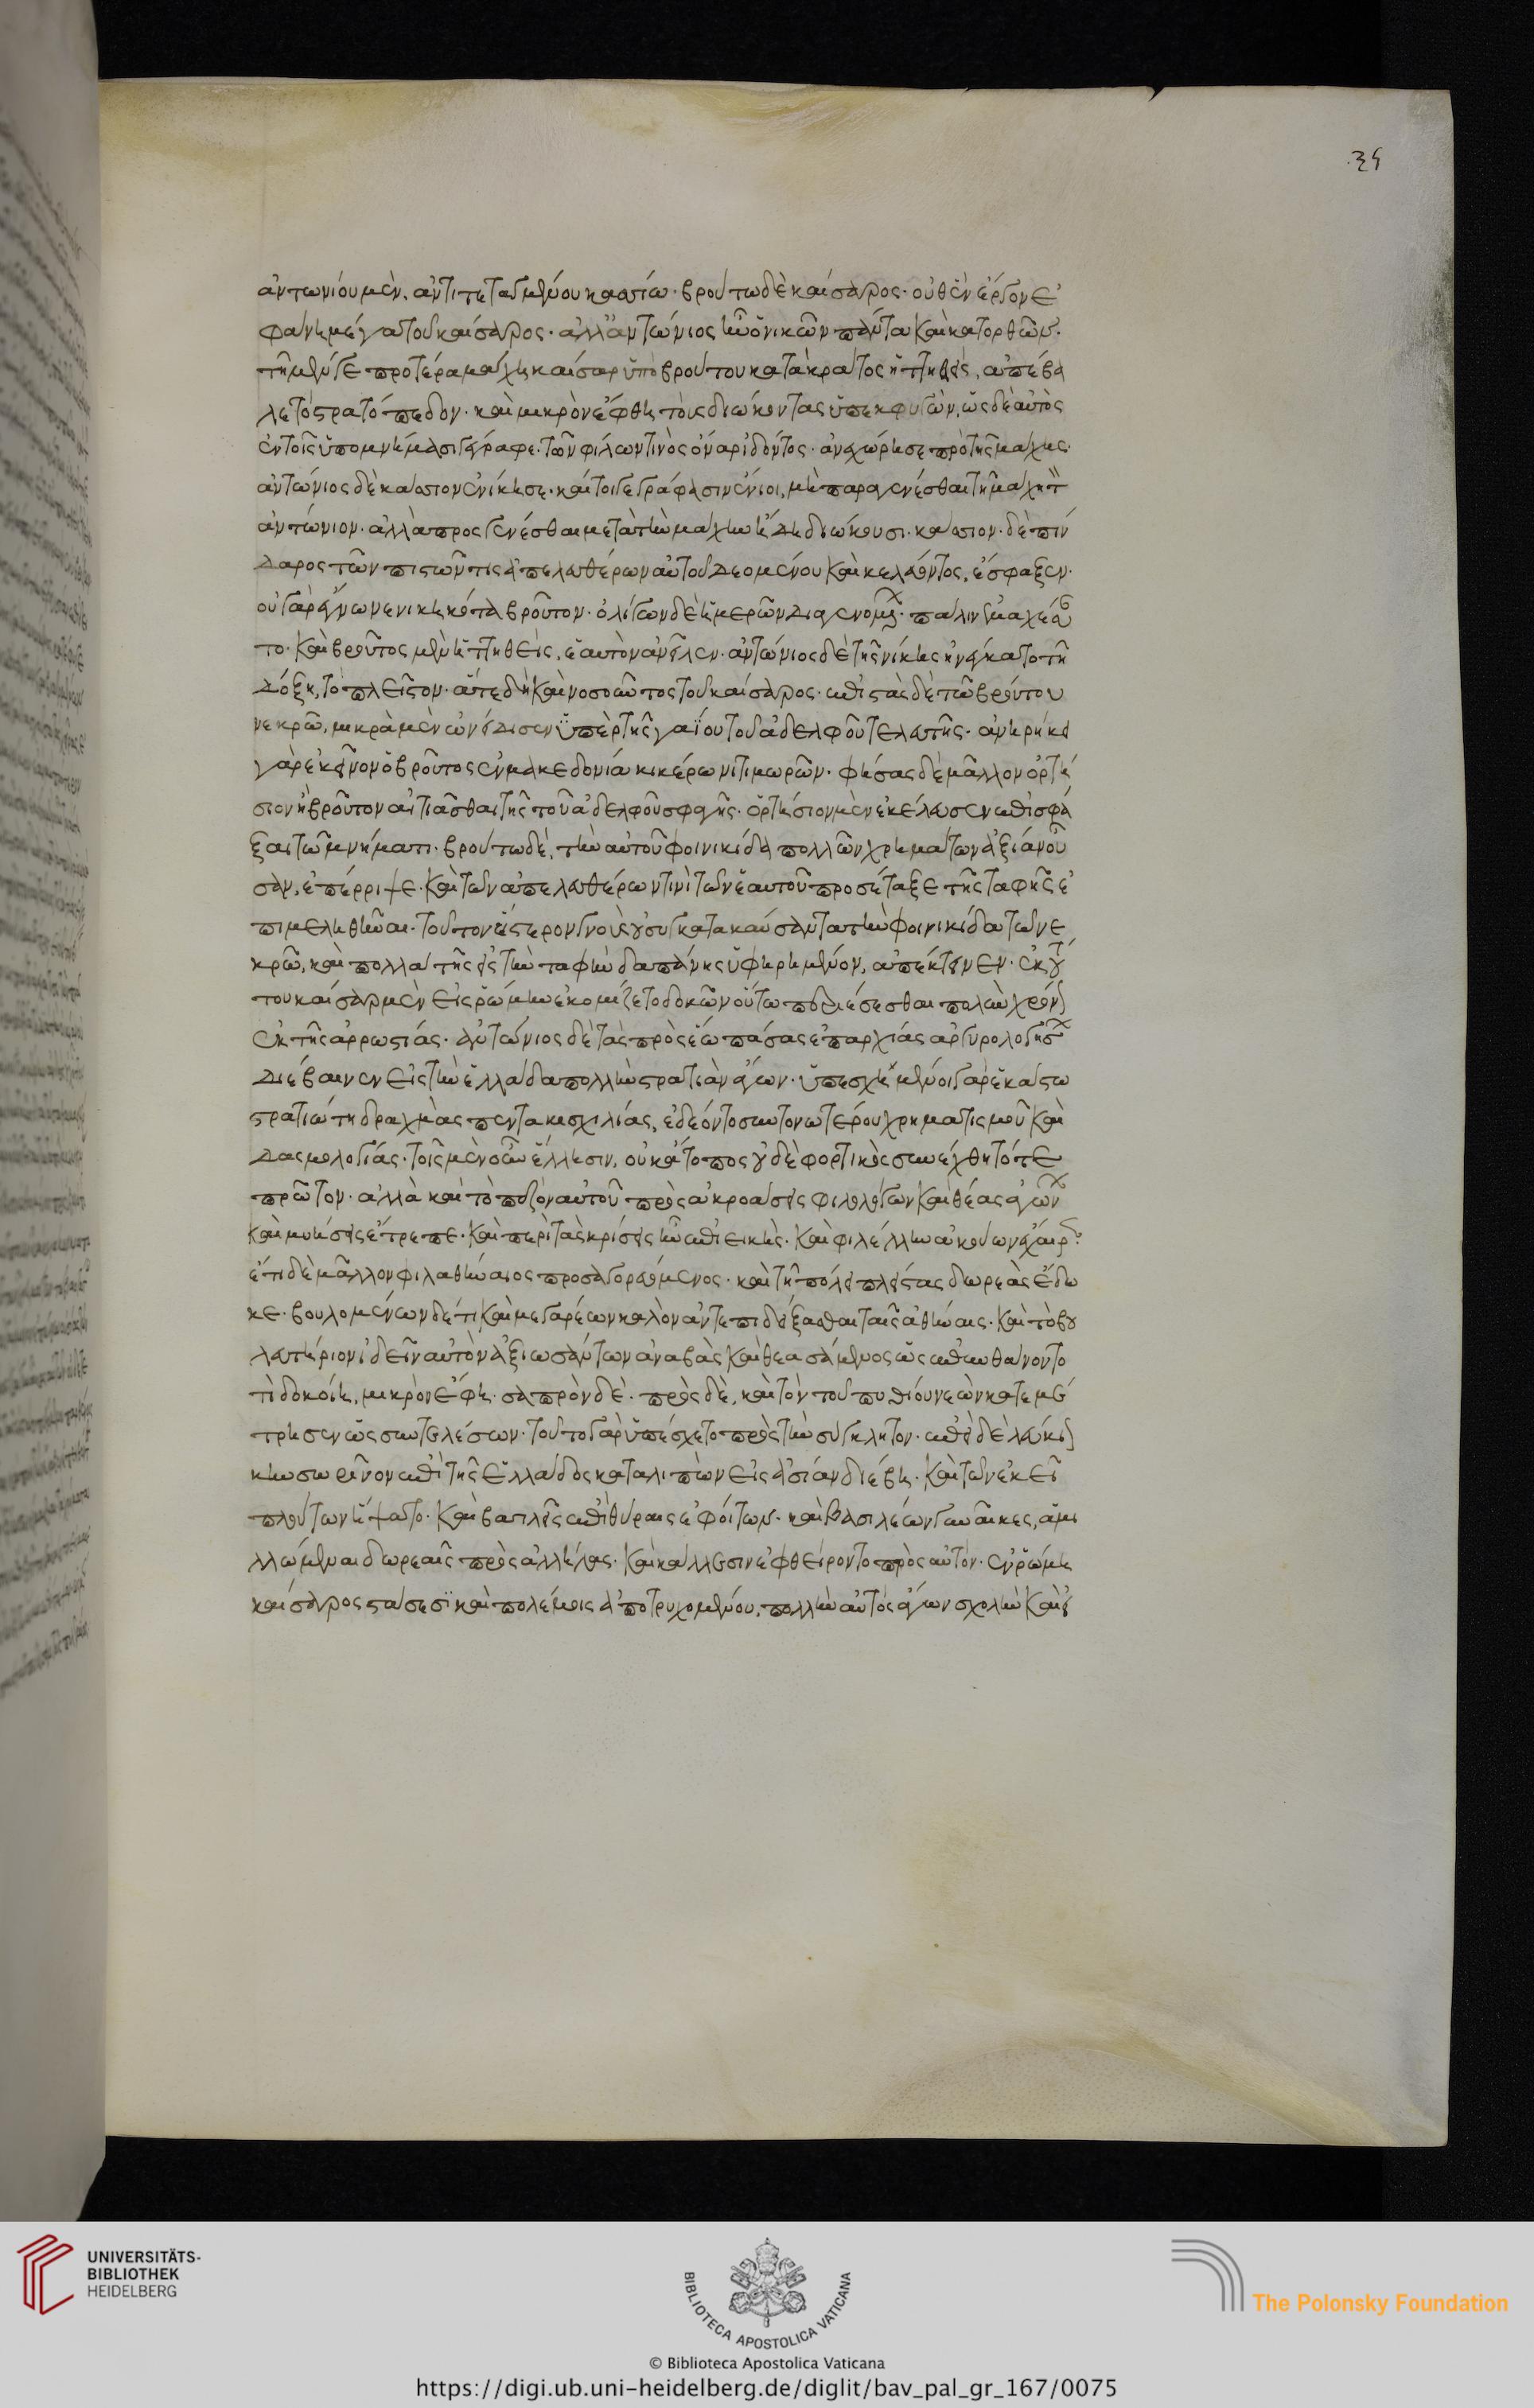 35
ἀντωνίου μὲν, ἀντιτεταγμένου κασσίω· βρούτω δὲ καίσαρος· οὐθὲν ἔργον ἐ
φαίνη μέγα τοῦ καίσαρος· ἀλλ' ἀντώνιος ἦν ὁ νικῶν πάντα καὶ κατορθῶν·
τῆ μέν γε προτέρα μάχη καίσαρ ὑπὸ βρούτου κατακράτος ἡττηθεὶς, ἀπέβα
λε τὸ στρατόπεδον· καὶ μικρὸν ἔφθη τοὺς διώκοντας ὑπεκφυγὼν, ὡς δὲ αὐτὸς
ἐν τοῖς ὑπομνήμασι γράφει· τῶν φίλων τινὸς ὄναρ ἰδόντος· ἀνεχώρησε πρὸ τῆς μάχης·
ἀντώνιος δὲ κάσσιον ἐνίκησε· καίτοι γεγράφασιν ἔνιοι, μὴ παραγενέσθαι τῆ μάχη τ
ἀντώνιον· ἀλλὰ προσγενέσθαι μετὰ τὴν μάχην ἤδη διώκουσι· κάσσιον· δὲ πίν
δαρος τῶν πιστῶν τις ἀπελευθέρων αὐτοῦ δεομένου καὶ κελεύοντος, ἔσφαξεν·
οὐ γὰρ ἔγνω νενικηκότα βροῦτον· ὀλίγων δὲ ἡμερῶν διαγενομένων· πάλιν ἐμαχέσαν
το· καὶ βροῦτος μὲν ἡττηθεὶς, ἑαυτὸν ἀνεῖλεν· ἀντώνιος δὲ τῆς νίκης ἠνέγκατο τῆ
δόξη, τὸ πλεῖστον· ἅτε δὴ καὶ νοσοῦντος τοῦ καίσαρος· ἐπιστὰς δὲ τῶ βρούτου
νεκρῶ, μικρὰ μὲν ὠνείδισεν ὑπὲρ τῆς γαΐου τοῦ ἀδελφοῦ τελευτῆς· ἀνηρήκει
γὰρ ἐκεῖνον ὁ βροῦτος ἐν μακεδονία κικέρωνι τιμωρῶν· φήσας δὲ μᾶλλον ὁρτή
σιον ἢ βροῦτον αἰτιᾶσθαι τῆς τοῦ ἀδελφοῦ σφαγῆς· ὁρτήσιον μὲν ἐκέλευσεν ἐπισφά
ξαι τῶ μνήματι· βρούτω δὲ, τὴν αὐτοῦ φοινικίδα πολλῶν χρημάτων ἀξίαν οὖ
σαν, ἐπέρριψε· καὶ τῶν ἀπελευθέρων τινὶ τῶν ἑαυτοῦ προσέταξε τῆς ταφῆς ἐ
πιμεληθῆναι· τοῦτον ὕστερον γνοὺς οὐ συγκατακαύσαντα τὴν φοινικίδα τῶ νε
κρῶ, καὶ πολλὰ τῆς εἰς τὴν ταφὴν δαπάνης ὑφηρημένον, ἀπέκτεινεν· ἐκ τού
του καίσαρ μὲν εἰς ῥώμην ἐκομίζετο δοκῶν οὔτω περιέσεσθαι πολὺν χρόνον
ἐκ τῆς ἀρρωστίας· ἀντώνιος δὲ τὰς πρὸς ἕω πάσας ἐπαρχίας ἀργυρολογήσων
διέβαινεν εἰς τὴν ἑλλάδα πολλὴν στρατιὰν ἄγων· ὑπεσχημένοι γὰρ ἑκάστω
στρατιώτη δραχμὰς πεντακισχιλίας, ἐδέοντο συντονωτέρου χρηματισμοῦ καὶ
δασμολογίας· τοῖς μὲν οὖν ἕλλησιν, οὐκ ἄτοπος οὐδὲ φορτικὸς συνέχθη τό τε
πρῶτον· ἀλλὰ καὶ τὸ παῖζον αὐτοῦ πρὸς ἀκροάσεις φιλολόγων καὶ θέας ἀγώνων
καὶ μυήσεις ἔτρεπε· καὶ περὶ τὰς κρίσεις ἦν ἐπιεικὴς· καὶ φιλέλλην ἀκούων ἔχαιρε·
ἔτι δὲ μᾶλλον φιλαθήναιος προσαγορευόμενος· καὶ τῆ πόλει πλείστας δωρεὰς ἔδω
κε· βουλομένων δέ τι καὶ μεγαρέων καλὸν ἀντεπιδείξασθαι ταῖς ἀθήναις· καὶ τὸ βου
λευτήριον ἰδεῖν αὐτὸν ἀξιωσάντων ἀναβὰς καὶ θεασάμενος ὡς ἐπυνθάνοντο
τὶ δοκοίη, μικρὸν ἔφη· σαπρὸν δὲ· πρὸς δὲ, καὶ τὸν τοῦ πυθίου νεὼν κατεμέ
τρησεν ὡς συντελέσων· τοῦτο γὰρ ὑπέσχετο πρὸς τὴν σύγκλητον· ἐπεὶ δὲ λεύκιον
κηνσωρῖνον ἐπὶ τῆς ἑλλάδος καταλιπὼν εἰς ἀσίαν διέβη· καὶ τῶν ἐκεῖ
πλούτων ἥψατο· καὶ βασιλεῖς ἐπὶ θύρας ἐφοίτων· καὶ βασιλέων γυναῖκες, ἁμι
λλώμεναι δωρεαῖς πρὸς ἀλλήλας· καὶ κάλλεσιν ἐφθείροντο πρὸς αὐτὸν· ἐν ῥώμη
καίσαρος στάσεσι καὶ πολέμοις ἀποτρυχομένου, πολλὴν αὐτὸς ἄγων σχολὴν καὶ εἰ
UNIVERSITÄTS-
BIBLIOTHEK
HEIDELBERG
BIBLIOTECA APOSTOLICA VATICANA
The Polonsky Foundation
© Biblioteca Apostolica Vaticana
https://digi.ub.uni-heidelberg.de/diglit/bav_pal_gr_167/0075